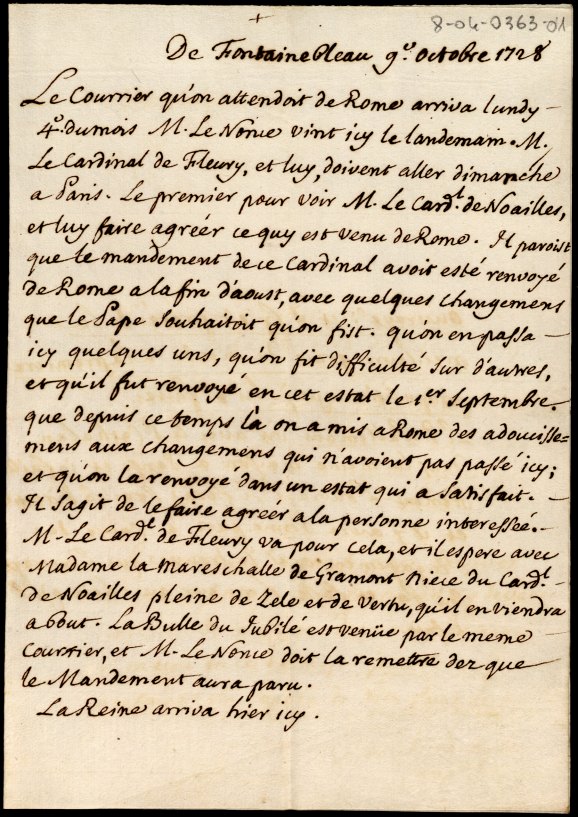 8-04-0363-01
+
De Fontainebleau 9.e octobre 1728
Le Courrier qu'on attendoit de Rome arriva lundy
4.e du mois M. Le Nonce vint icy le landemain. M.
Le Cardinal de Fleury, et luy, doivent aller dimanche
a Paris. Le premier pour voir M. Le Card.l de Noailles,
et luy faire agréer ce quy est venu de Rome. Il paroist
que le mandement de ce Cardinal avoit esté renvoyé
de Rome a la fin d'aoust, avec quelques changemens
que le Pape souhaitoit qu'on fist. qu'on en passa
icy quelques uns, qu'on fit difficulté sur d'autres,
et qu'il fut renvoyé en cet estat le 1.er Septembre.
que depuis ce temps là on a mis a Rome des adoucisse=
mens aux changemens qui n'avoient pas passé icy;
et qu'on la renvoyé dans un estat qui a satisfait.
Il s'agit de le faire agréer a la personne interessée.
M. Le Card.l de Fleury va pour cela, et il espere avec
Madame la Mareschalle de Gramont Niece du Card.l
de Noailles pleine de Zele et de vertu, qu'il en viendra
a bout. La Bulle du Jubilé est venüe par le meme
Courrier, et M. Le Nonce doit la remettre dez que
le Mandement aura paru.
La Reine arriva hier icy.